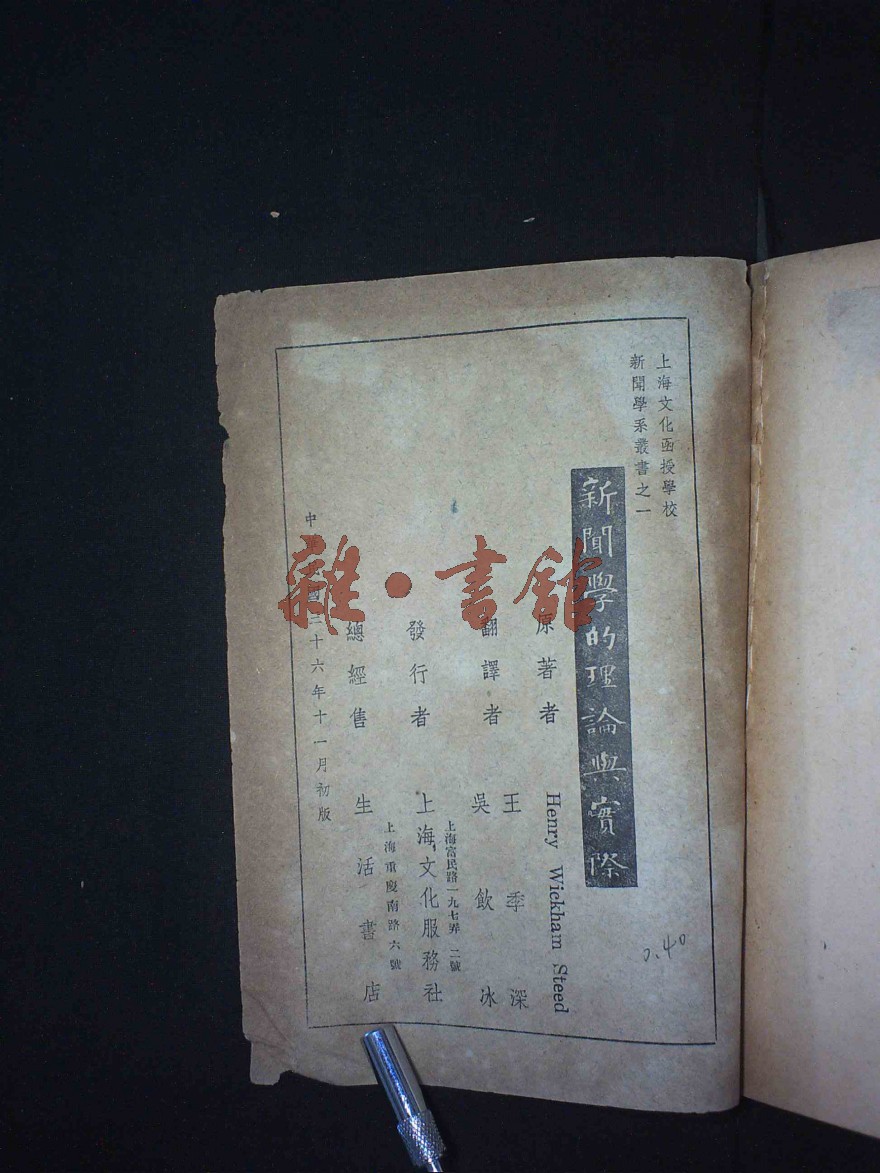 上海文化函授學校
新聞學系叢書之一
新聞學的理論與實際
原著者 Henry Wickham Steed
翻譯者 王季深
吳飲冰
發行者 上海文化服務社
上海富民路一九七弄二號
總經售 生活書店
上海重慶南路六號
中 國三十六年十一月初版
雜·書館
0.40